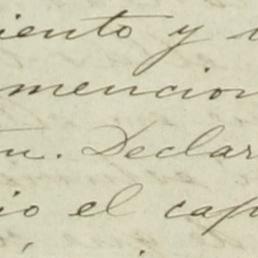 iento y
mencion
n. Declar
io el cap